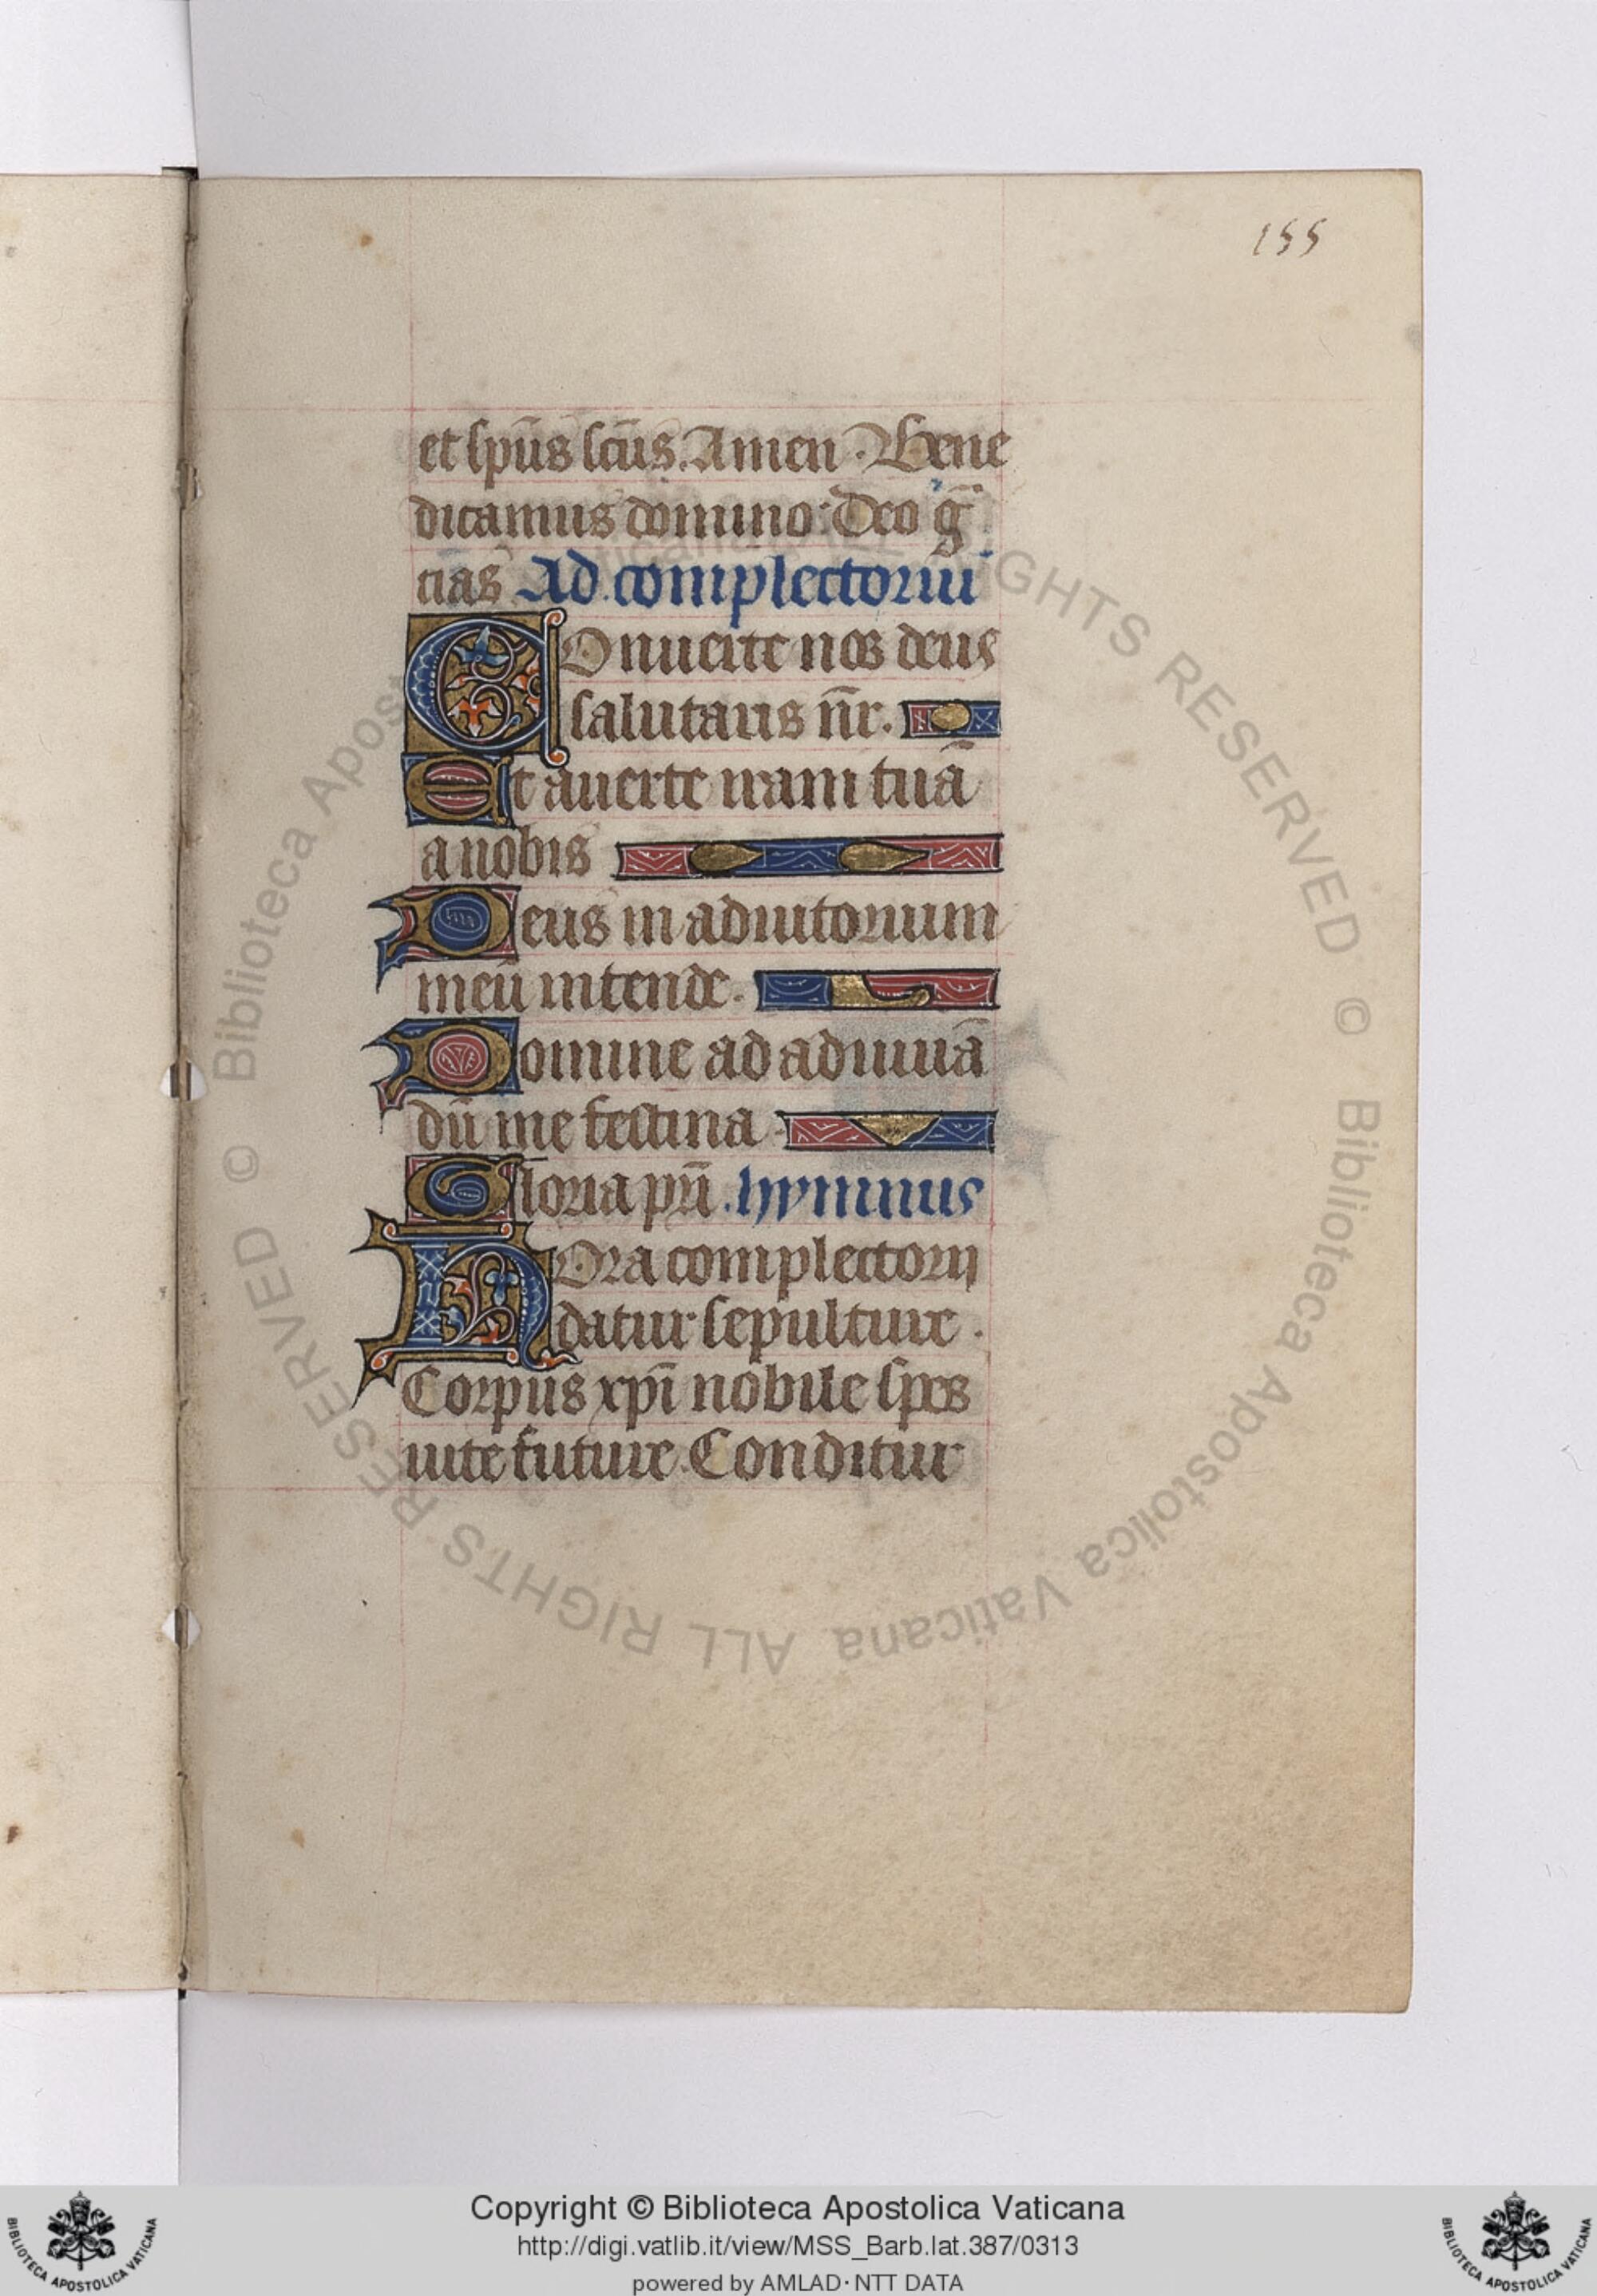 155
et spūs scūs. Amen. Bene
dicamus domino. Deo g̃
cias Ad complectoriū
COnuerte nos deus
salutaris n̄r.
Et auerte iram tuā
a nobis
Deus in adiutorium
meū intende.
Domine ad adiuuā
dū me festina
Gloria pr̄i. hymnus
HOra complectorij
datur sepulture.
Corpus xp̄i nobile spes
uite future. Conditur
© Biblioteca Apostolica Vaticana ALL RIGHTS RESERVED © Biblioteca Apostolica Vaticana ALL RIGHTS RESERVED
Copyright © Biblioteca Apostolica Vaticana
http://digi.vatlib.it/view/MSS_Barb.lat.387/0313
powered by AMLAD·NTT DATA
BIBLIOTECA APOSTOLICA VATICANA
BIBLIOTECA APOSTOLICA VATICANA